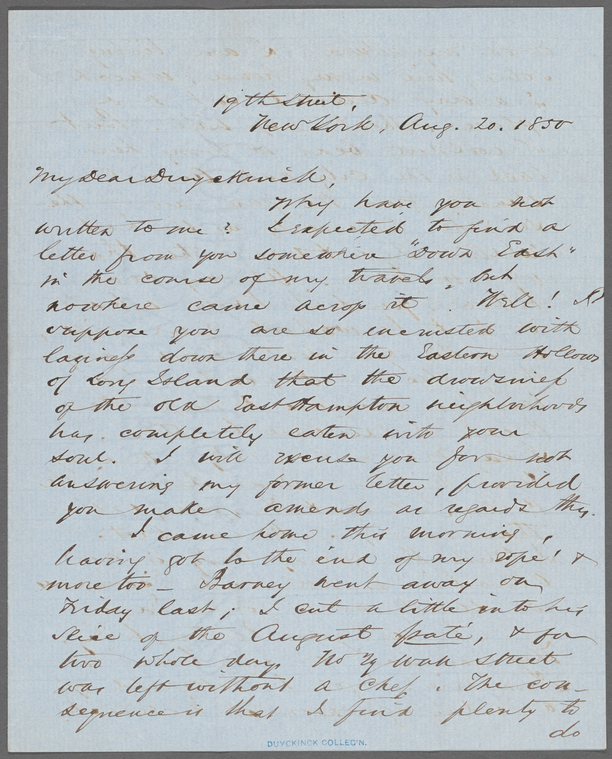 19th Street,
New York, Aug. 20. 1850
My Dear Duyckinck,
Why have you not
written to me? I expected to find a
letter from you somewhere "Down East"
in the course of my travels, but
nowhere came across it. Well! I
suppose you are so incrusted with
laziness down there in the Eastern Hollows
of Long Island that the drowsiness
of the old East Hampton neighborhoods
has completely eaten into your
soul. I will excuse you for not
answering my former letter, provided
you make amends as regards this.
I came home this morning,
having got to the end of my rope! &
more too — Barney went away on
Friday last; I cut a little into his
slice of the August paté, & for
two whole days No 79 Wall Street
was left without a chef. The con-
sequence is that I find plenty to
do
DUYCKINCK COLLEC'N.